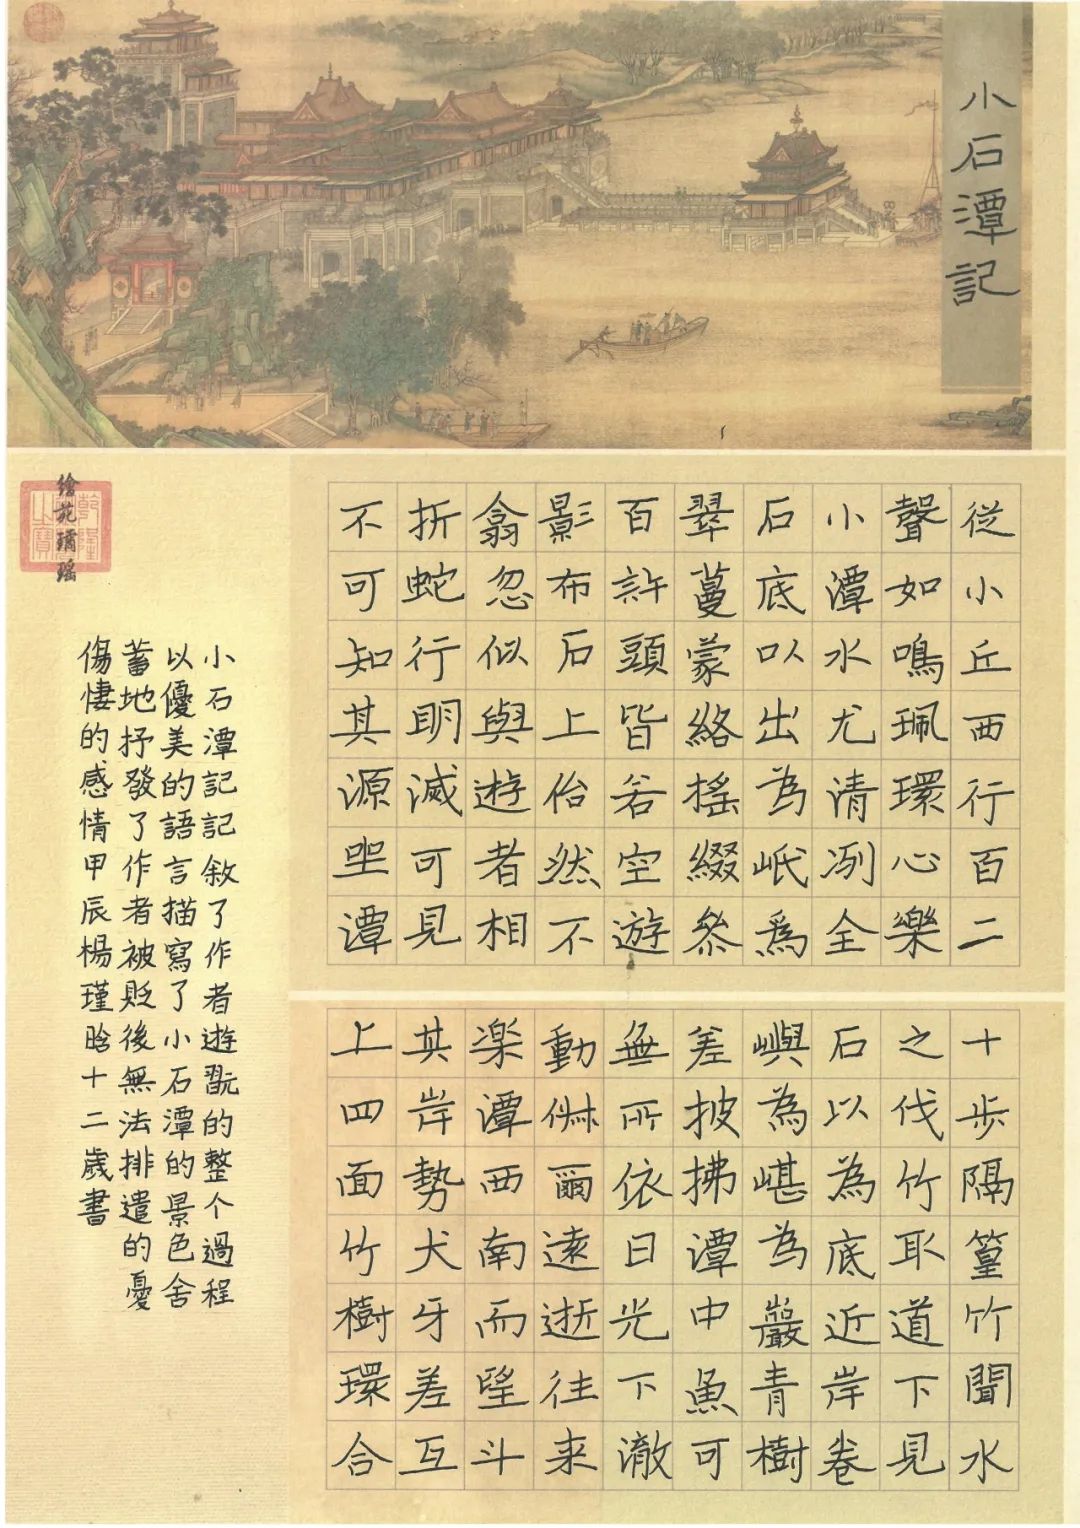 小石潭記
從小丘西行百二
十步隔篁竹聞水
聲如鳴珮環心樂
之伐竹取道下見
小潭水尤清冽全
石以為底近岸卷
石底以出為岻為
嶼為嵁為巖青樹
翠蔓蒙絡搖綴參
差披拂潭中魚可
百許頭皆若空遊
無所依日光下澈
影布石上佁然不
動俶爾遠逝往来
翕忽似與遊者相
楽潭西南而望斗
折蛇行明滅可見
其岸勢犬牙差互
不可知其源坐潭
上四面竹樹環合
小石潭記記敘了作者遊翫的整个過程
以優美的語言描寫了小石潭的景色舍
蓄地抒發了作者被貶後無法排遣的憂
傷悽的感情甲辰楊瑾晗十二歲書
繪苑璚瑤
乾隆之寶